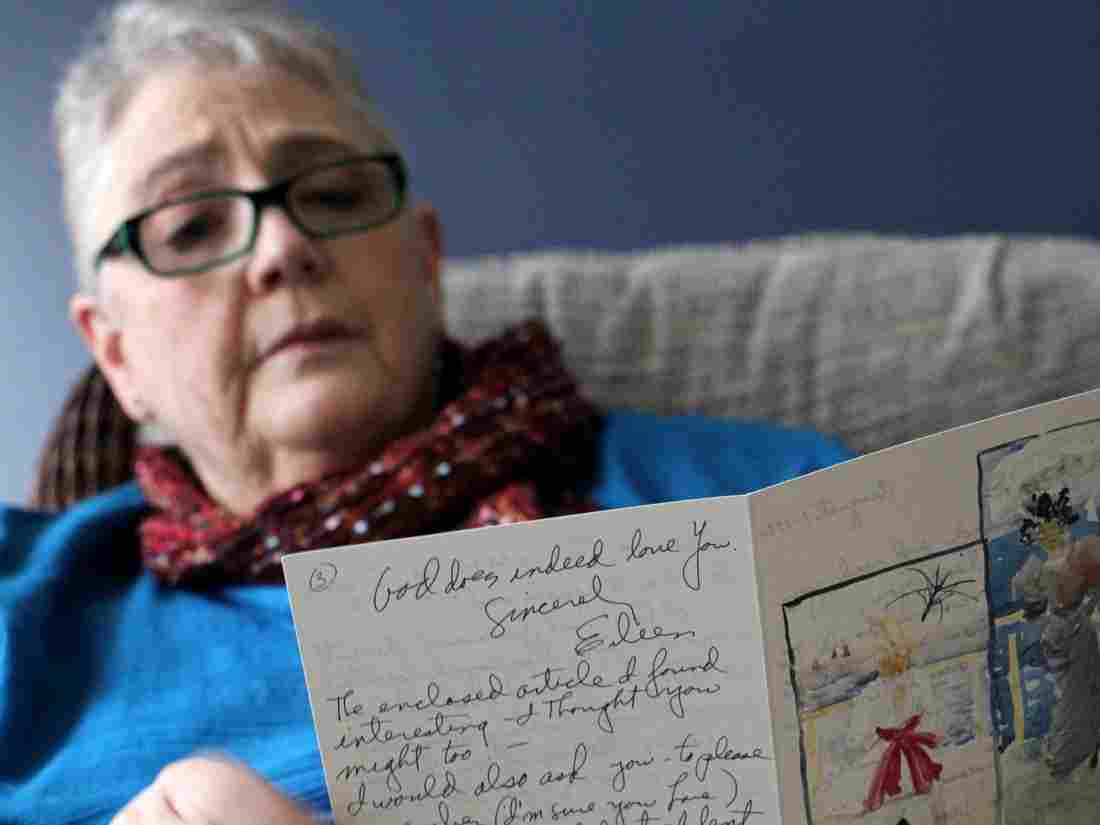 ③ God does indeed love you.
Sincerely
Eileen
The enclosed article I found
interesting - I thought you
might too -
I would also ask you - to please
(I'm sure you have)